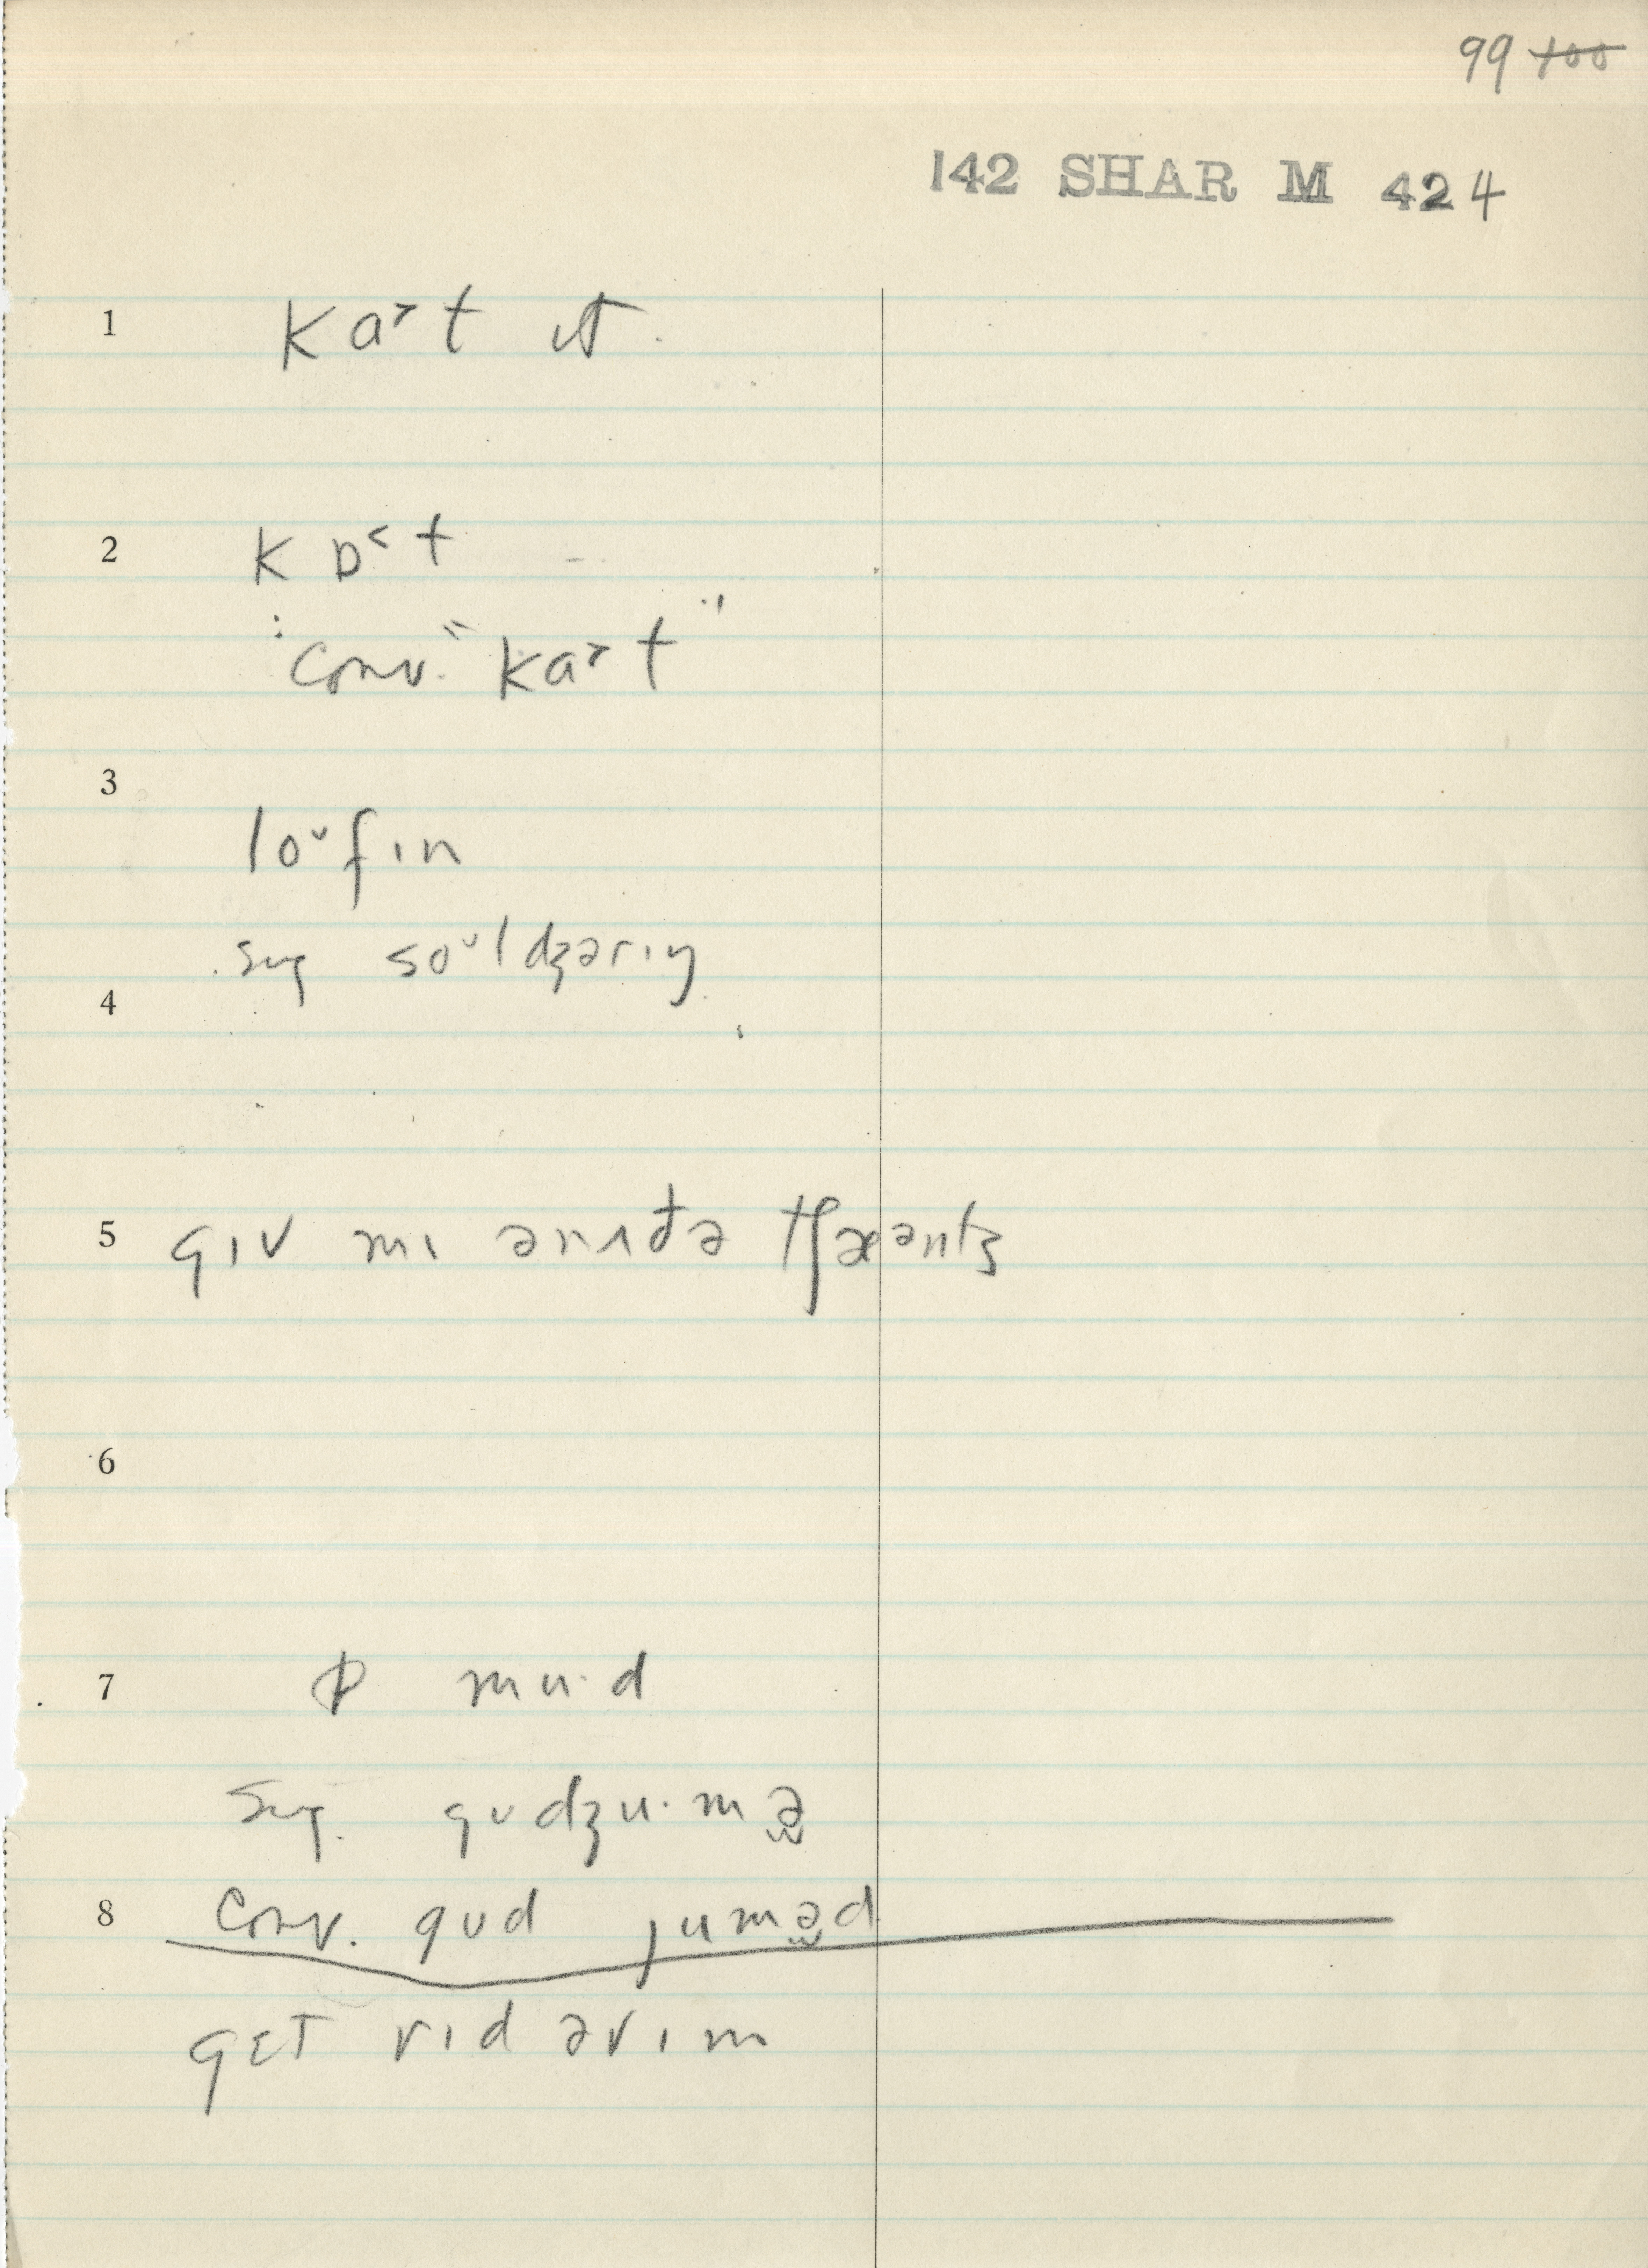 99 100
142 SHAR M 424
1 ka˃t ɪt
2 kɒ˂t
: conv. "ka˃t"
3
lo˅fɪn
sug so˅ldʒərɪŋ
4
5 gɪv mɪ ənʌðə tʃæənts
6
7 ɒ mu·d
sug. gʊdʒu·mə̬
8 conv. gʊd jumə̬d
gɛt rɪd əvɪm